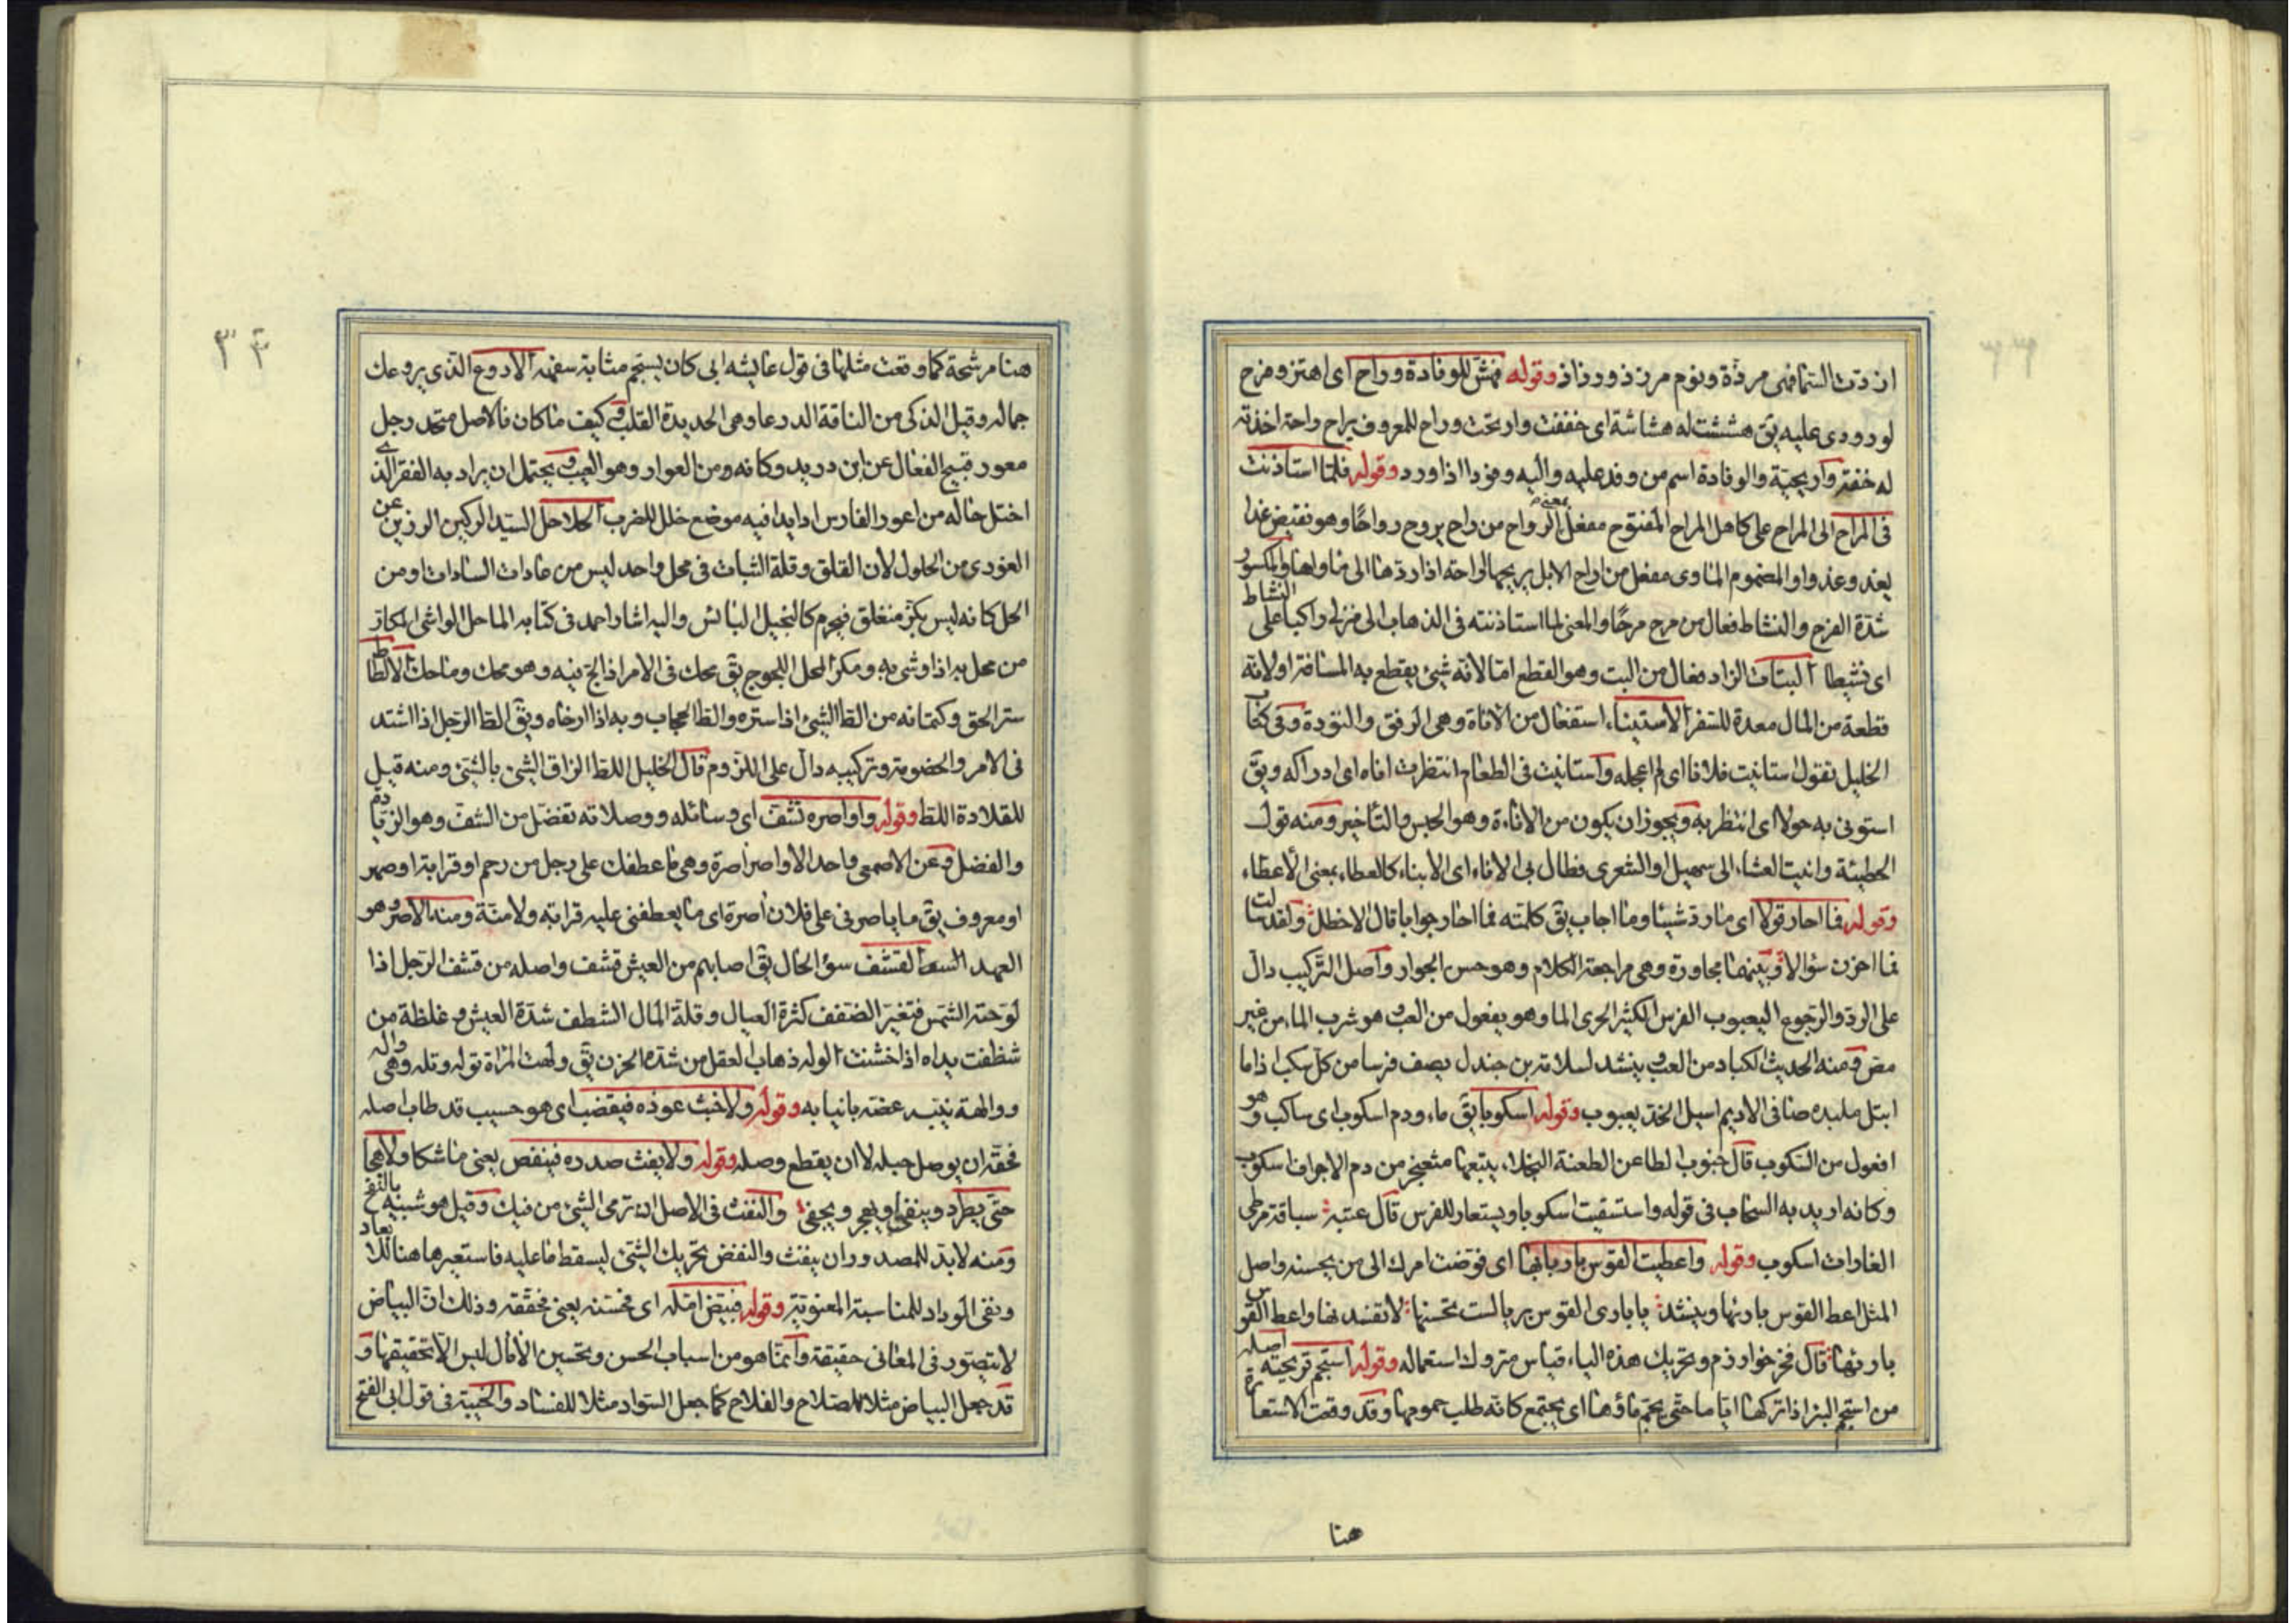 ارذت السماء فهى مرذة ويوم مرذ ذو رذاذ وقوله فهش للوفادة وراح اى اهتز وفرح
لورودى عليه يق هششت له هشاشة اى خففت وارتحت وراح للمعروف يراح راحة اخذته
له خفة واريحية والوفادة اسم من وفد عليه واليه وفودا اذا ورد وقوله فلما استاذنت
فى المراح الى المراح على كاهل المراح المفتوح مفعل بمعنى الرواح من راح يروح رواحا وهو نقيض غدا
يغدو غدوا والمضموم الماوى مفعل من اراح الابل يريحها اراحة اذا ردها الى ماواها والمكسور
شدة الفرح والنشاط فعال من مرح مرحا والمعنى لما استاذنته فى الذهاب الى منزلى راكبا على النشاط
اى نشيطا البتات الزاد فعال من البت وهو القطع اما لانه شئ يقطع به المسافة او لانه
قطعة من المال معدة للسفر الاستيناء استفعال من الاناة وهى الرفق والتؤدة وفى كتاب
الخليل تقول ستانيت فلانا اى لم اعجله واستانيت فى الطعام انتظرت اناه اى ادراكه ويق
استونى به حولا اى انتظر به ويجوز ان يكون من الاناءة وهو الحبس والتاخير ومنه قول
الحطيئة وانيت العشاء الى سهيل او الشعرى فطال بى الاناء اى الايناء كالعطاء بمعنى الاعطاء
وقوله فما احار قولا اى ما رد شيئا وما اجاب يق كلمته فما احار جوابا قال الاخطل ولقد سالت
فما احرن سؤالا وبينهما محاورة وهى مراجعة الكلام وهو حسن الجوار واصل التركيب دال
على الرد والرجوع اليعبوب الفرس الكثير الجرى الما وهو يفعول من العب وهو شرب الماء من غير
مص ومنه الحديث الكباد من العب ينشد لسلامة بن جندل يصف فرسا من كل سكب اذا ما
ابتل ملبده صافى الاديم اسيل الخد يعبوب وقوله اسكوبا يق ماء ودم اسكوب اى ساكب وهو
افعول من السكوب قال جنوب الطاعن الطعنة النجلاء يتبعها مثعنجر من دم الاجواف اسكوب
وكانه اريد به السحاب فى قوله واستسقيت اسكوبا ويستعار للفرس قال عتبة سباقة مرطى
الغاوات اسكوب وقوله واعطيت القوس باريها اى فوضت امرك الى من يحسنه واصل
المثل اعط القوس باريها وينشد يا بارى القوس بريا لست تحسنها لا تفسدنها واعط القوس
باريها قال فخر خوارزم وتحريك هذه الياء قياس متروك استعماله وقوله استجم قريحته اصله
من استجم البئر اذا تركها اياما حتى يجم ماؤها اى يجتمع كانه طلب جمومها وقد وقعت الاستعارة
هنا
٣٣
هنا مرشحة كما وقعت مثلها فى قول عايشه ابى كان يستجم مثابة سفهه الاروع الذى يروعك
جماله وقيل الذكى من الناقة الروعا وهى الحديدة القلب وكيف ما كان فالاصل متحد رجل
معور قبيح الفعال عن ابن دريد وكانه من العوار وهو العيب ويحتمل ان يراد به الفقير الذى
اختل حاله من اعور الفارس اذا بدا فيه موضع خلل للضرب الحلاحل السيد الركين الرزين عن
الغورى من الحلول لان القلق وقلة الثبات فى محل واحد ليس من عادات السادات او من
الحل كانه ليس بكز منغلق فيحرم كالبخيل البائس واليه اشار احمد فى كتابه الماحل الواشى المكار
من محل به اذا وشى به ومكر المحل اللجوج يق محك فى الامر اذا لج فيه وهو محك وماحك الالطاط
ستر الحق وكتمانه من الظ الشئ اذا ستره والظ الحجاب وبه اذا ارخاه ويق الظ الرجل اذا اشتد
فى الامر والخضومة وتركيبه دال على اللزوم قال الخليل اللط الزاق الشئ بالشئ ومنه قيل
للقلادة اللط وقوله واواصره تشف اى وسائله ووصلاته تفضل من الشف وهو الزيادة
والفضل وعن الاصمعى واحد الاواصر آصرة وهى ما عطفك على رجل من رحم او قرابة او صهر
او معروف يق ما ياصرنى على فلان آصرة اى ما يعطفنى عليه قرابة ولا منة ومنه الاصر وهو
العهد القشف سؤ الحال يق اصابهم من العيش قشف واصله من قشف الرجل اذا
لوحته الشمس فتغير الضفف كثرة العيال وقلة المال الشظف شدة العيش وغلظه من
شظفت يداه اذا خشنت الوله ذهاب العقل من شدة الحزن يق ولهت المراة توله وتله وهى واله
ووالهة نيبه عضه بانيابه وقوله ولا خبث عوده فيقضب اى هو حسيب قد طاب اصله
فحقه ان يوصل حبله لا ان يقطع وصله وقوله ولا يفث صدره فينفض يعنى ما شكا ولا هجا
حتى يطرد وينفى او يهجر ويجفى والنفث فى الاصل ان ترمى الشئ من فيك وقيل هو شبيه بالنفخ
ومنه لا بد للمصدور ان ينفث والنفض تحريك الشئ ليسقط ما عليه فاستعيرها هنا للابعاد
ونفى الوداد للمناسبة المعنوية وقوله فبيض امله اى فحسنه يعنى فحققه وذلك ان البياض
لا يتصور فى المعانى حقيقة وانما هو من اسباب الحسن وتحسين الآمال ليس الا تحقيقها و
قد جعل البياض مثلا للصلاح والفلاح كما جعل السواد مثلا للفساد والخيبة فى قول ابى الفتح